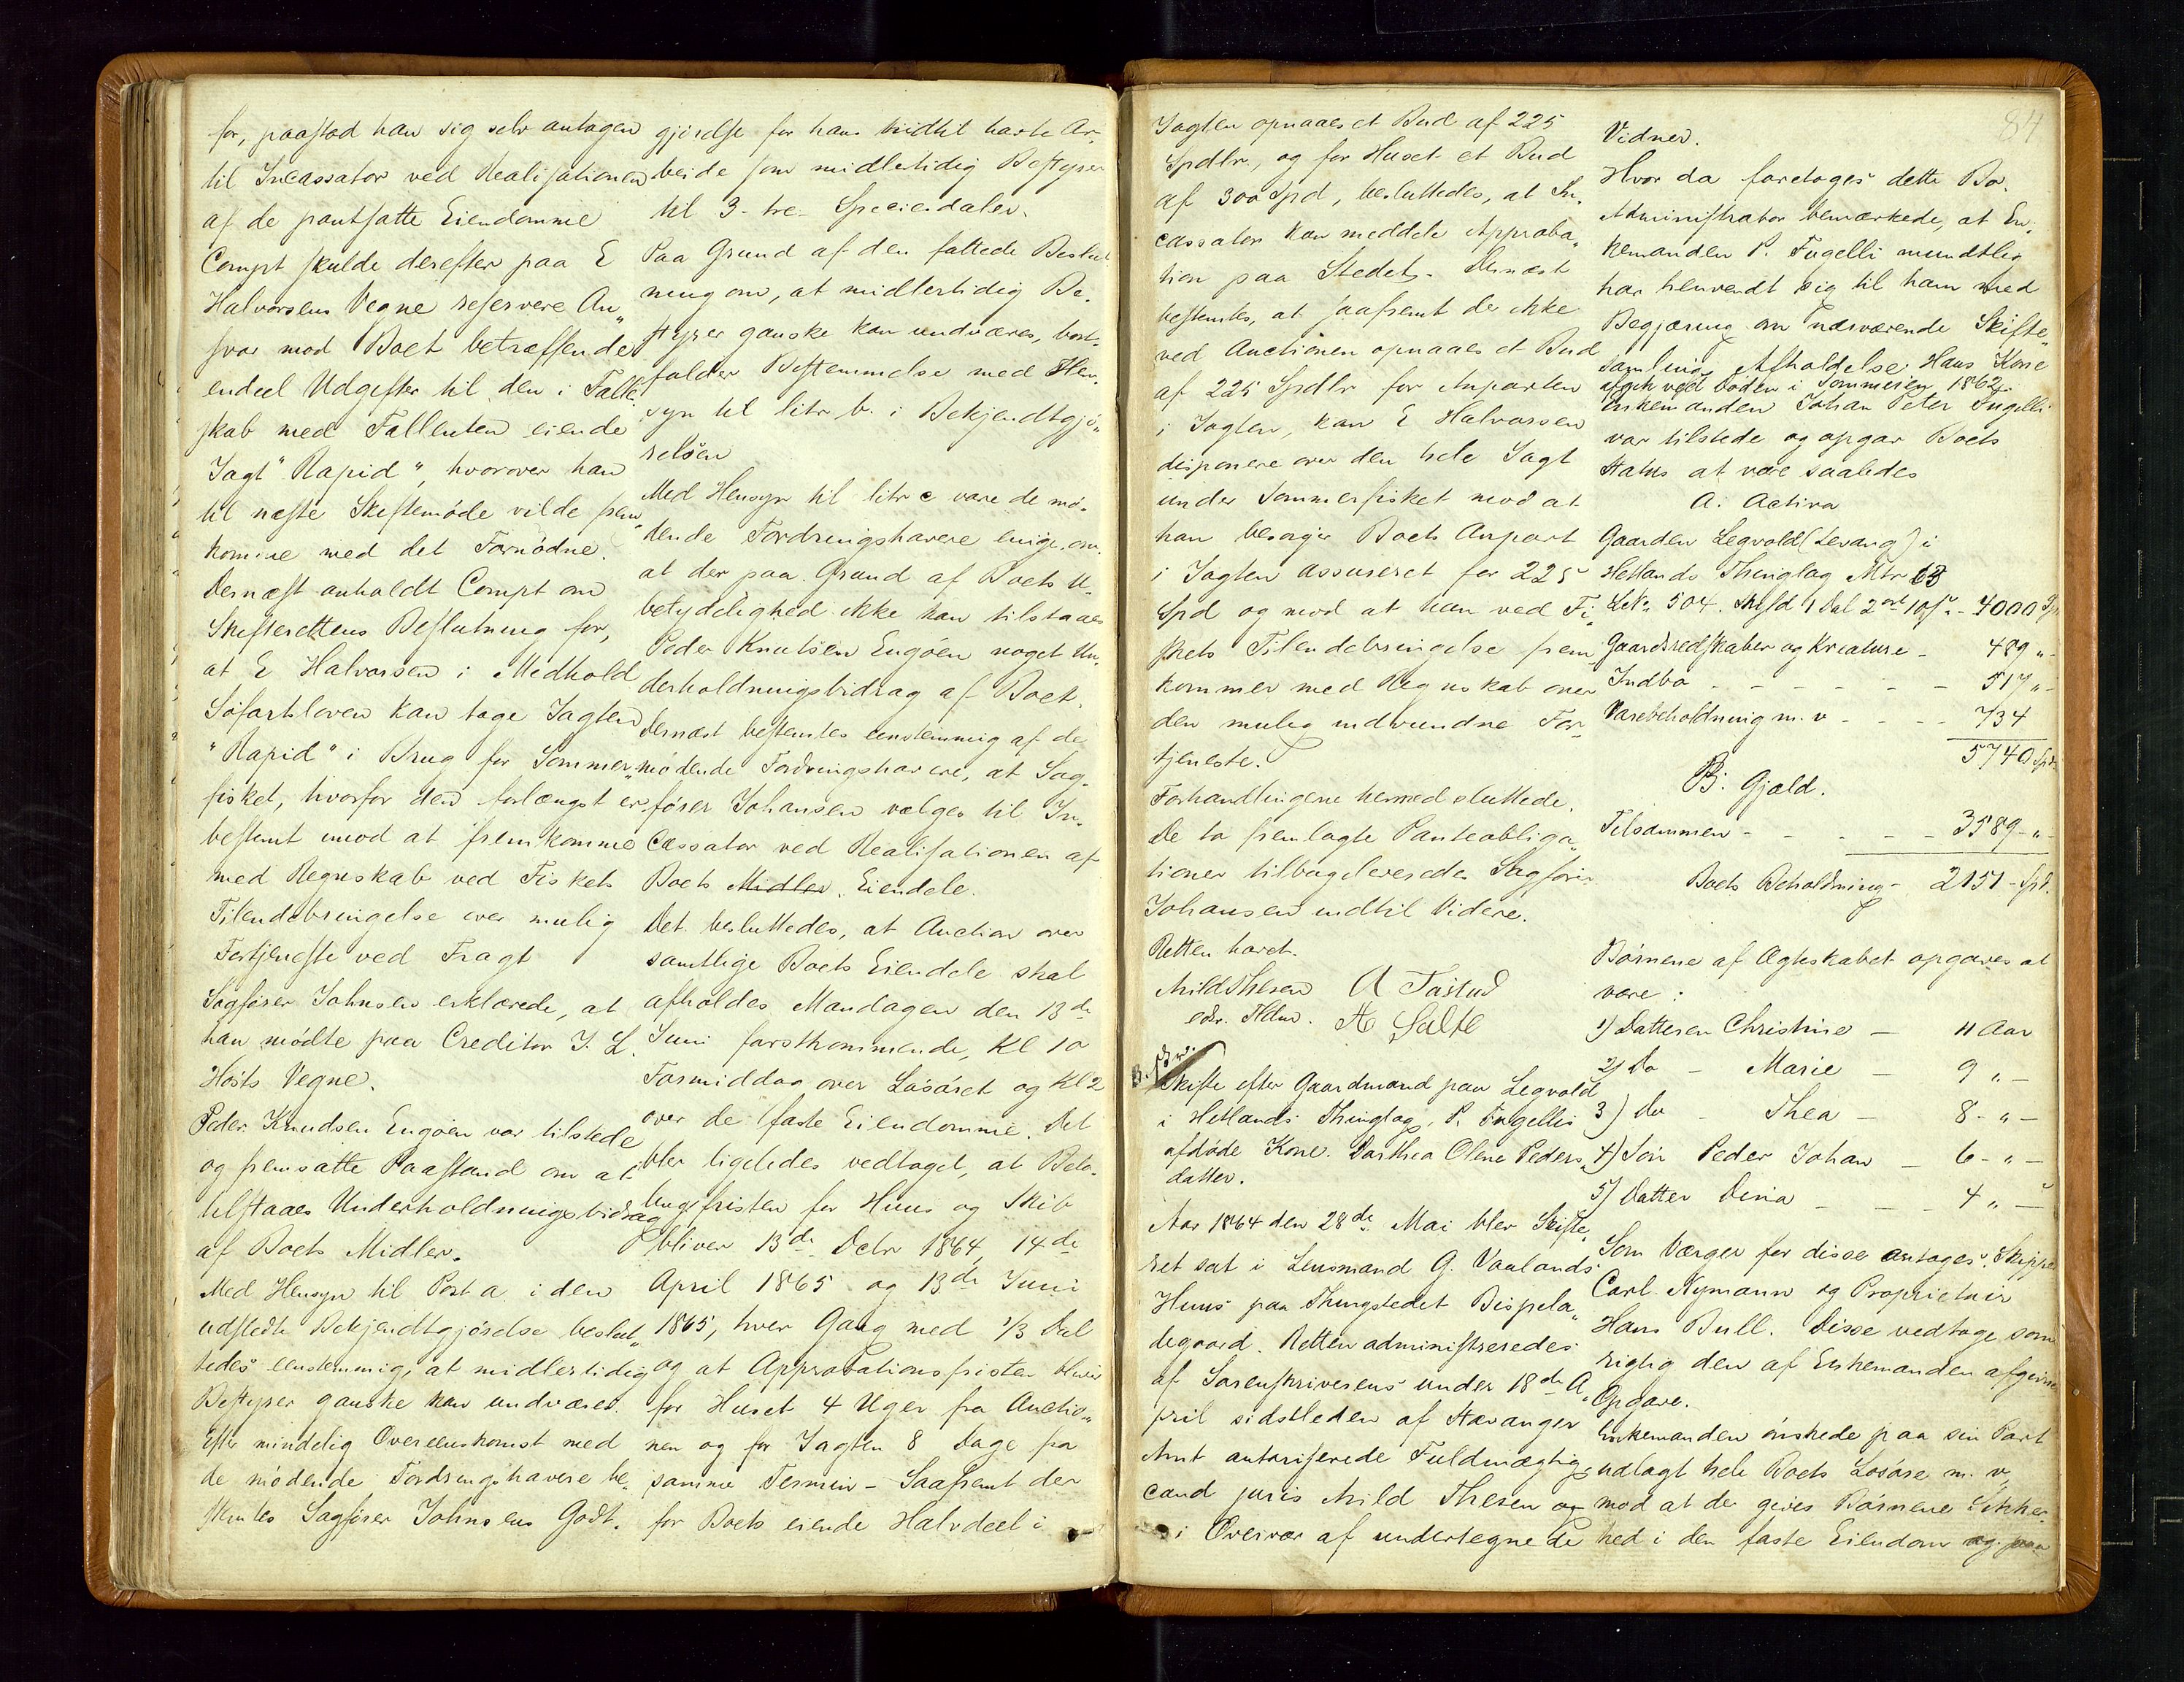 for, paastod han sig selv antagen
til Incassator ved Realisationen
af de pantsatte Eiendomme
Compt skulde derefter paa E
Halvorsens Vegne reservere An„
svar mod Boet betræffende
endeel Udgifter til den i Fælle„
skab med Fallenten eiende
Jagt "Rapid", hvorover han
til næste Skiftemøde vilde frem„
komme med det Fornødne.
Dernæst anholdt Compt om
Skifterettens Beslutning for,
at E Halvorsen i Medhold
Søfartsloven kan tage Jagten
"Rapid" i Brug for Sommer„
fisket, hvorfor den forlængst er
bestemt imod at fremkomme
med Regnskab ved Fiskets
Tilendebringelse over mulig
Fortjeneste ved Fragt
Sagfører Johnsen erklærede, at
han mødte paa Creditor J. L.
Høsts Vegne.
Peder Knudsen Engøen var tilstede
og fremsatte Paastand om at
tilstaaes Underholdningsbidrag
af Boets Midler.
Med Hensyn til Post a i den
udstedte Bekjendtgjørelse beslut„
tedes eenstemmig, at midlertidig
Bestyrer ganske kan undværes.
Efter mindelig Overeenskomst med
de mødende Fordringshavere be„
stemtes Sagfører Johnsens Godt„
gjørelse for hans hidtil havte Ar„
beide som midlertidig Bestyrer
til 3 - tre - Speciedaler.
Paa Grund af den fattede Beslut
ning om, at midlertidig Be„
styrer ganske kan undværes, bort„
falder Bestemmelse med Hen„
syn til litr b. i Bekjendtgjø„
relsen
Med Hensyn til litr c vare de mø„
dende Fordringshavere enige om
at der paa Grund af Boets U„
betydelighed ikke kan tilstaaes
Peder Knutsen Engøen noget Un„
derholdningsbidrag af Boet.
Dernæst bestemtes eenstemmig af de
mødende Fordringshavere, at Sag„
fører Johansen vælges til In„
cassator ved Realisationen af
Boets Midler. Eiendele.
Det besluttedes, at Auction over
samtlige Boets Eiendele skal
afholdes Mandagen den 13de
Juni førstkommende, Kl 10
Formiddag over Løsøret og Kl 2
over de faste Eiendomme. Det
blev ligeledes vedtaget, at Beta„
lingsfristen for Huus og Skib
bliver 13de Debr 1864, 14de
April 1865 og 13de Juni
1865, hver Gang med 1/3 Del
og at Approbationsfristen bliver
for Huset 4 Uger fra Auctio„
nen og for Jagten 8 Dage fra
samme Termin - Saafremt der
for Boets eiende Halvdeel i
Jagten opnaaes et Bud af 225
Spdlr, og for Huset et Bud
af 300 Spd, besluttedes, at In„
cassator kan meddele Approba„
tion paa Stedet. Dernæst
bestemtes, at saafremt der ikke
ved Auctionen opnaaes et Bud
af 225 Spdlr for Anparten
i Jagten, kan E Halvorsen
disponere over den hele Jagt
under Sommerfisket mod at
han besørger Boets Anpart
i Jagten assureret for 225
Spd og mod at han ved Fi„
skets Tilendebringelse frem„
kommer med Regnskab over
den mulig indvundne For„
tjeneste.
Forhandlingerne hermed sluttede.
De to fremlagte Panteobliga„
tioner tilbageleveredes Sagfører
Johansen indtil Videre.
Retten hævet.
Arild Thesen A Tastad
A Salte
Skifte efter Gaardmand paa Legvold
i Hetlands Thinglag, P. Fugellis
afdøde Kone. Dorthea Olene Peders„
datter.
Aar 1864 den 28de Mai blev Skifte„
ret sat i Lensmand G. Vaalands
Huus paa Thingstedet Bispela„
degaard. Retten administreredes
af Sorenskriverens under 18de A„
pril sidstleden af Stavanger
Amt autoriserede Fuldmægtig,
cand juris Arild Thesen og
i Overvær af undertegnede
84
Vidner.
Hvor da foretoges dette Bo.
Administrator bemærkede, at En„
kemanden P. Fugelli mundtlig
har henvendt sig til ham med
Begjæring om nærværende Skifte„
samlings Afholdelse. Hans Kone
afgik ved Døden i Sommeren 1862.
Enkemanden Johan Peter Fugelli
var tilstede og opgav Boets
Status at være saaledes
A. Activa
Gaarden Legvold (Levang) i
Hetlands Thinglag Mtr 63
LNo 504. Skyld 1 Dal 2 ort 10 s - 4000 Spd
Gaardsredskaber og Kreature - 489 „ -
Indbo - - - - - - 517 „ -
Varebeholdning m. v - - - - 734
5740 Spd
B. Gjæld.
Tilsammen - - - - - 3589 - „ -
Boets Beholdning - 2151 - Spd.
Børnene af Ægteskabet opgaves at
være:
1) Datteren Christine - 11 Aar
2) Do - Marie - 9 „ -
3) Do - Thea - 8 - „ -
4) Søn Peder Johan - 6 - „ -
5) Datter Dina - - - 4 „ -
Som Værger for disse antoges Skipper
Carl Nymann og Proprietair
Hans Bull. Disse vedtoge som
rigtig den af Enkemanden afgivne
Opgave.
Enkemanden ønskede paa sin Part
udlagt hele Boets Løsøre m. v,
mod at der gives Børnene Sikker„
hed i den faste Eiendom og paa